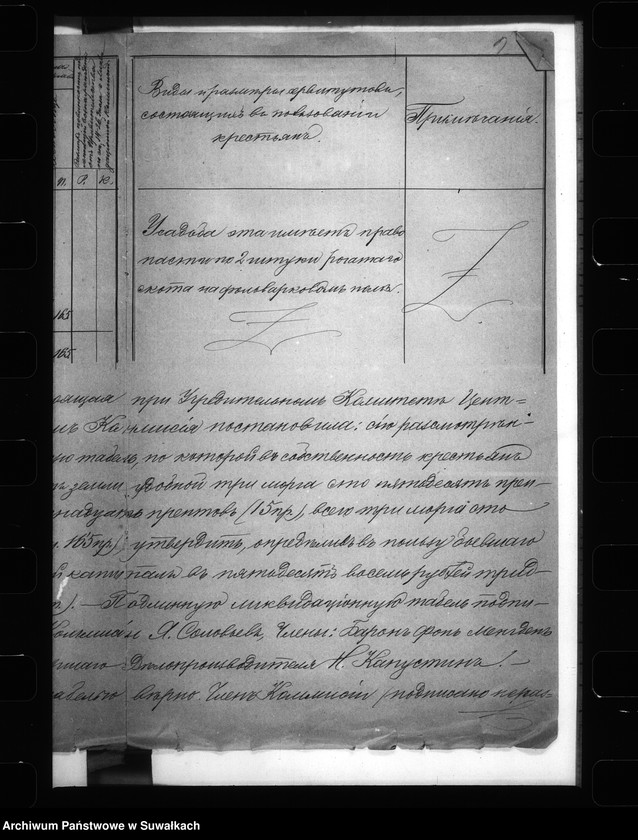 Виды и размѣры сервитутовъ,
состоящихъ въ пользованіи
крестьянъ.
Примѣчанія.
п. Р. К.
Усадьба эта имѣетъ право
пасти по 2 штуки рогатаго
скота на фольварковомъ полѣ.
165
165
при Учредительномъ Комитетѣ Цент=
Коммисія постановила: сію разсмотрѣн-
табель, по которой въ собственность крестьянъ
земли удобной три морга сто пятьдесятъ прен-
прентовъ (15 пр.), всего три морга сто
165 пр.) утвердить, опредѣливъ въ пользу бывшаго
капиталъ въ пятьдесятъ восемь рублей трид-
Подлинную ликвидаціонную табель подпи-
Коммисіи Я. Соловьевъ, Члены: Баронъ фонъ Менгденъ
Дѣлопроизводителя Н. Капустинъ.
вѣрно. Членъ Коммисіи (подписано
Archiwum Państwowe w Suwałkach